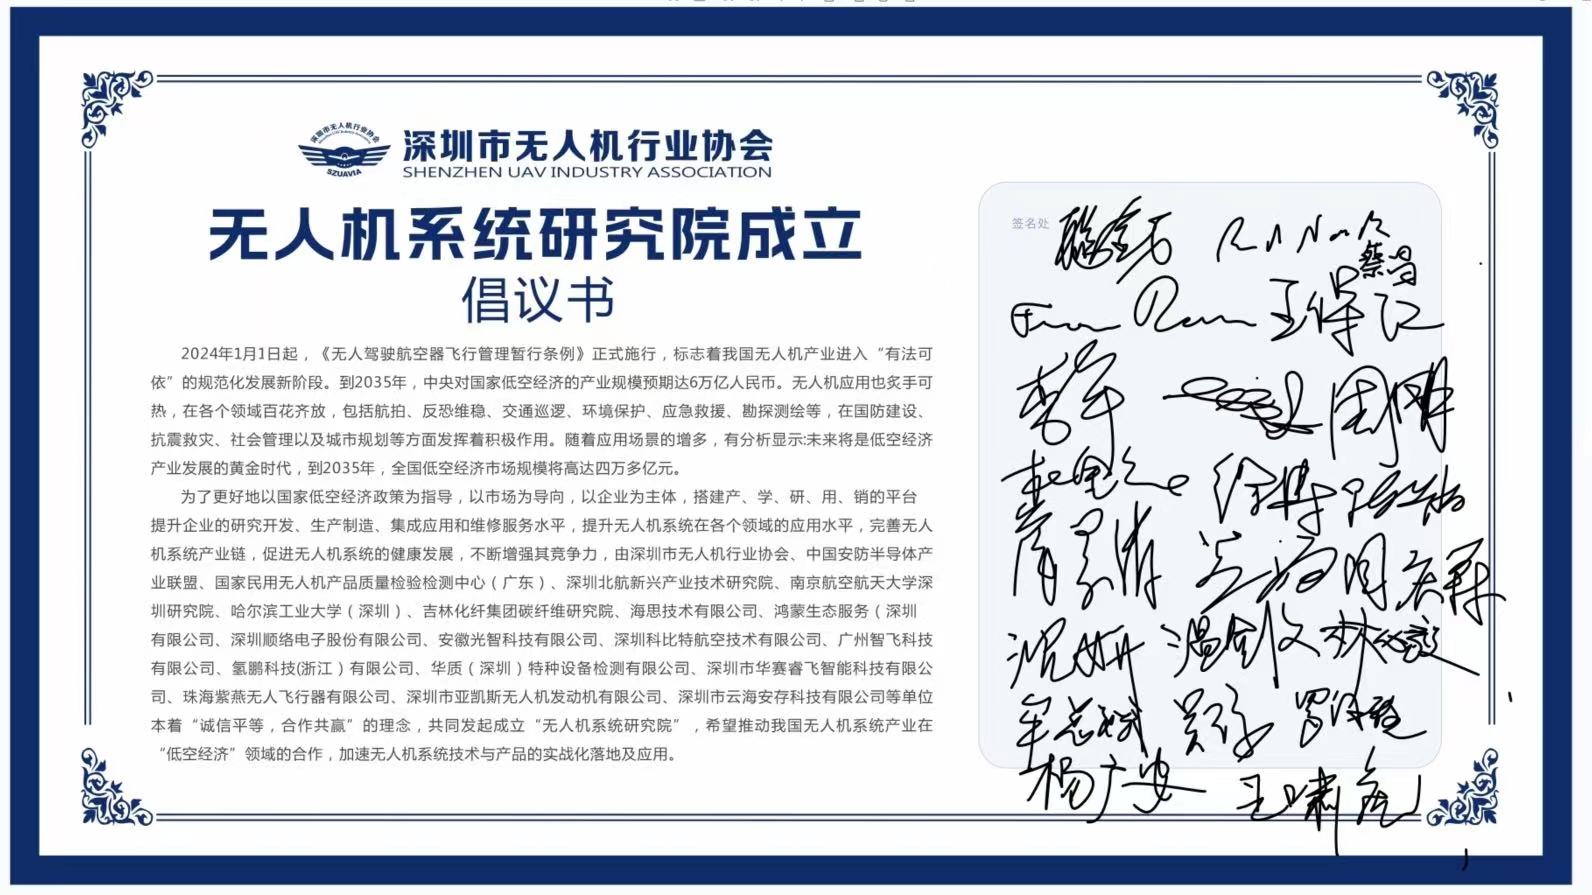 深圳市无人机行业协会
SZUAVIA
深圳市无人机行业协会
SHENZHEN UAV INDUSTRY ASSOCIATION
无人机系统研究院成立
倡议书
2024年1月1日起，《无人驾驶航空器飞行管理暂行条例》正式施行，标志着我国无人机产业进入“有法可
依”的规范化发展新阶段。到2035年，中央对国家低空经济的产业规模预期达6万亿人民币。无人机应用也炙手可
热，在各个领域百花齐放，包括航拍、反恐维稳、交通巡逻、环境保护、应急救援、勘探测绘等，在国防建设、
抗震救灾、社会管理以及城市规划等方面发挥着积极作用。随着应用场景的增多，有分析显示:未来将是低空经济
产业发展的黄金时代，到2035年，全国低空经济市场规模将高达四万多亿元。
为了更好地以国家低空经济政策为指导，以市场为导向，以企业为主体，搭建产、学、研、用、销的平台
提升企业的研究开发、生产制造、集成应用和维修服务水平，提升无人机系统在各个领域的应用水平，完善无人
机系统产业链，促进无人机系统的健康发展，不断增强其竞争力，由深圳市无人机行业协会、中国安防半导体产
业联盟、国家民用无人机产品质量检验检测中心（广东）、深圳北航新兴产业技术研究院、南京航空航天大学深
圳研究院、哈尔滨工业大学（深圳）、吉林化纤集团碳纤维研究院、海思技术有限公司、鸿蒙生态服务（深圳
有限公司、深圳顺络电子股份有限公司、安徽光智科技有限公司、深圳科比特航空技术有限公司、广州智飞科技
有限公司、氢鹏科技(浙江）有限公司、华质（深圳）特种设备检测有限公司、深圳市华赛睿飞智能科技有限公
司、珠海紫燕无人飞行器有限公司、深圳市亚凯斯无人机发动机有限公司、深圳市云海安存科技有限公司等单位
本着“诚信平等，合作共赢”的理念，共同发起成立“无人机系统研究院”，希望推动我国无人机系统产业在
“低空经济”领域的合作，加速无人机系统技术与产品的实战化落地及应用。
签名处
杨广安